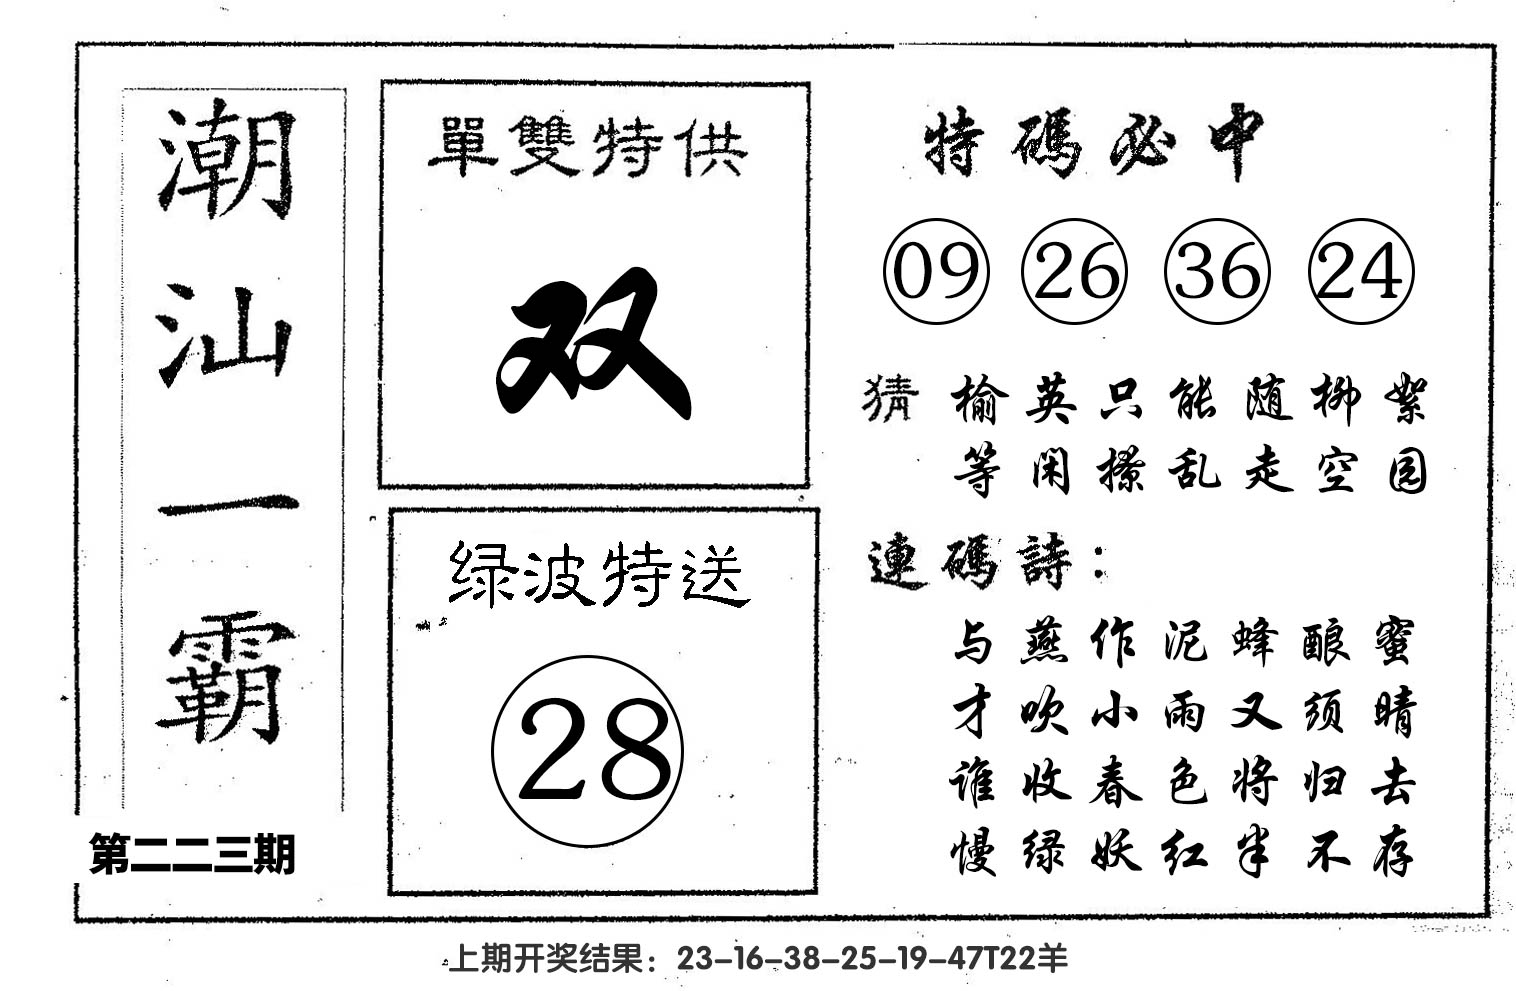 潮汕一霸
第二二三期
單雙特供
双
绿波特送
28
特碼必中
09 26 36 24
猜 榆英只能随柳絮
等闲撩乱走空园
連碼詩：
与燕作泥蜂酿蜜
才吹小雨又须晴
谁收春色将归去
慢绿妖红半不存
上期开奖结果：23-16-38-25-19-47T22羊